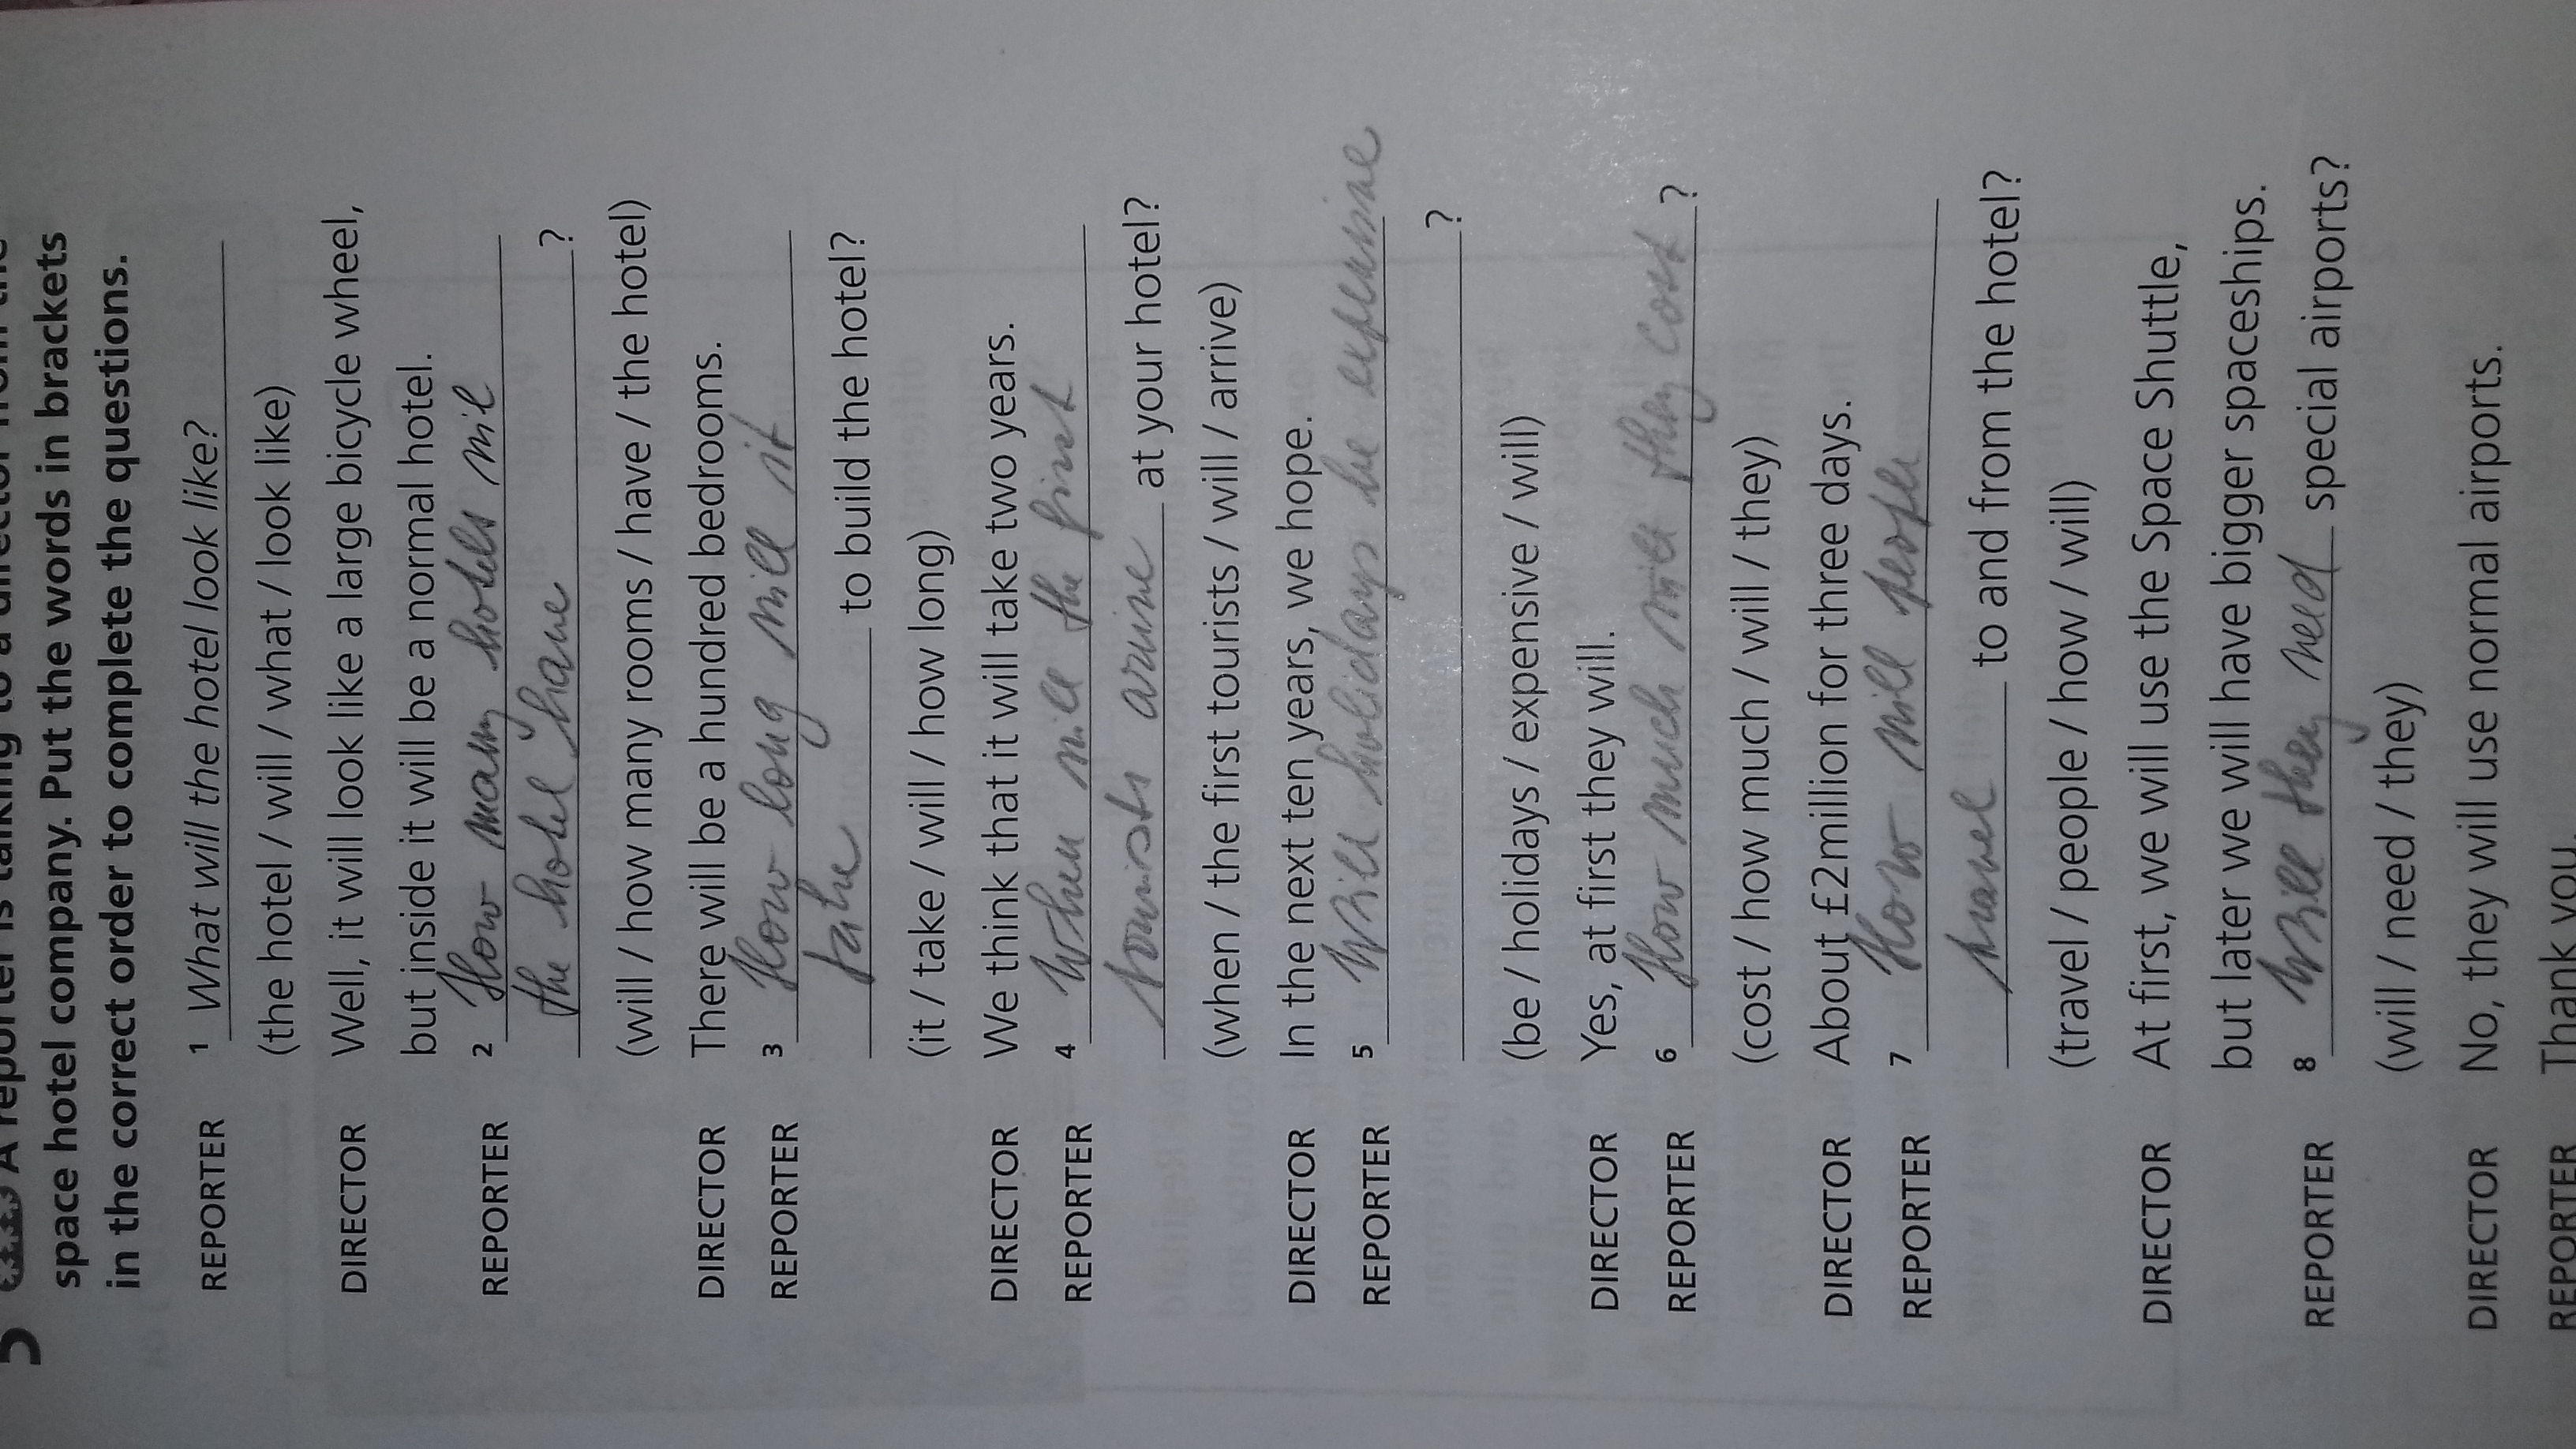 5 A reporter is talking to a director from the
space hotel company. Put the words in brackets
in the correct order to complete the questions.
REPORTER 1 What will the hotel look like?
(the hotel / will / what / look like)
DIRECTOR Well, it will look like a large bicycle wheel,
but inside it will be a normal hotel.
REPORTER 2 How many hotels will
the hotel have ?
(will / how many rooms / have / the hotel)
DIRECTOR There will be a hundred bedrooms.
REPORTER 3 How long will it
take to build the hotel?
(it / take / will / how long)
DIRECTOR We think that it will take two years.
REPORTER 4 When will the first
tourists arrive at your hotel?
(when / the first tourists / will / arrive)
DIRECTOR In the next ten years, we hope.
REPORTER 5 Will holidays be expensive
?
(be / holidays / expensive / will)
DIRECTOR Yes, at first they will.
REPORTER 6 How much will they cost ?
(cost / how much / will / they)
DIRECTOR About £2million for three days.
REPORTER 7 How will people
travel to and from the hotel?
(travel / people / how / will)
DIRECTOR At first, we will use the Space Shuttle,
but later we will have bigger spaceships.
REPORTER 8 Will they need special airports?
(will / need / they)
DIRECTOR No, they will use normal airports.
REPORTER Thank you.